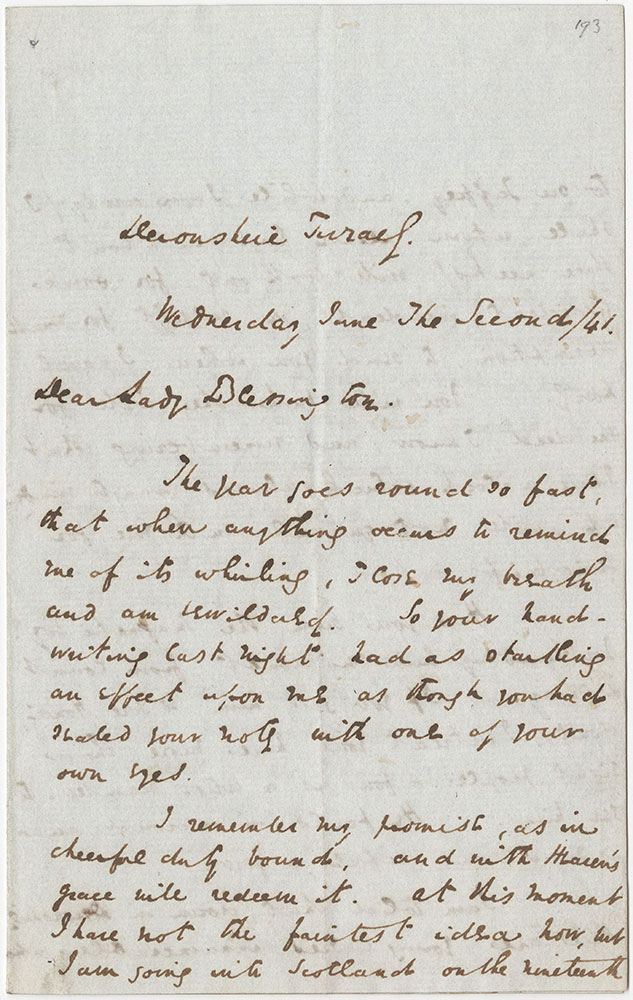 193
Devonshire Terrace.
Wednesday June The Second/41.
Dear Lady Blessington.
The year goes round so fast,
that when anything occurs to remind
me of its whirling, I lose my breath
and am bewildered. So your hand-
writing last night had as startling
an effect upon me as though you had
sealed your note with one of your
own eyes.
I remember my promise, as in
cheerful duty bound, and with Heaven's
grace will redeem it. At this moment
I have not the faintest idea how, but
I am going into Scotland on the nineteenth